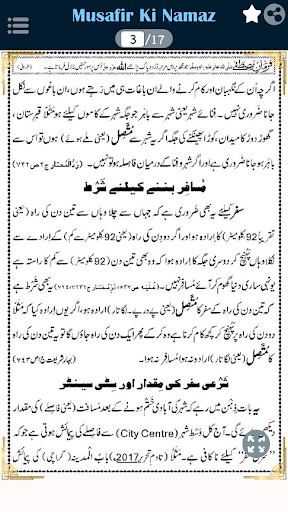 Musafir Ki Namaz
3 /17
اگرچہ اُن کے نگہبان اور کام کرنے والے ان باغات ہی میں رہتے ہوں، ان باغوں سے نکل
جانا ضروری نہیں۔ فنائے شہر یعنی شہر سے باہر جو جگہ شہر کے کاموں کیلئے ہو مثلاً قبرستان،
گھوڑ دوڑ کا میدان، کوڑا پھینکنے کی جگہ اگر یہ شہر سے مُتَّصِل (یعنی ملے ہوئے) ہوں تو اس سے
باہر ہو جانا ضروری ہے اور اگر شہر و فنا کے درمیان فاصلہ ہو تو نہیں۔ (رَدُّالْمُحتار ج۲ص۷۲۲)
مُسافِر بننے کیلئے شَرْط
سفر کیلئے یہ بھی ضروری ہے کہ جہاں سے چلا وہاں سے تین دن کی راہ (یعنی
تقریباً 92 کلومیٹر) کا ارادہ ہو اور اگر دو دن کی راہ (یعنی 92 کلومیٹر سے کم) کے ارادے سے
نکلا وہاں پہنچ کر دوسری جگہ کا ارادہ ہوا کہ وہ بھی تین دن (92 کلومیٹر) سے کم کا راستہ ہے
یونہی ساری دنیا گھوم کر آئے مسافر نہیں۔ یہ بھی شرط ہے
کہ تین دن کی راہ کے سفر کا مُتَّصِل (یعنی لگاتار) ارادہ ہو، اگر یوں ارادہ کیا کہ مثلاً دو
دن کی راہ پر پہنچ کر کچھ کام کرنا ہے وہ کر کے پھر ایک دن کی راہ جاؤں گا تو یہ تین دن کی راہ کا
مُتَّصِل (یعنی لگاتار) ارادہ نہ ہوا مُسافِر نہ ہوا۔ (بہارِ شریعت ج۱ص۷۴۳)
شَرْعی سفر کی مِقدار اور سِٹی سینٹر
یہ بات ذِہن میں رہے کہ شہر کی آبادی ختم ہونے کے بعد مَسافت (یعنی فاصلے) کی مقدار
دیکھی جائے گی۔ آج کل وَسْطِ شہر (City Centre) سے فاصلے کی پیمائش ہوتی ہے جو کہ
"شَرْعی سفر" کیلئے ناکافی ہے۔ مَثَلاً (تادمِ تحریر 2017) بابُ المدینہ (کراچی) کی پیمائش